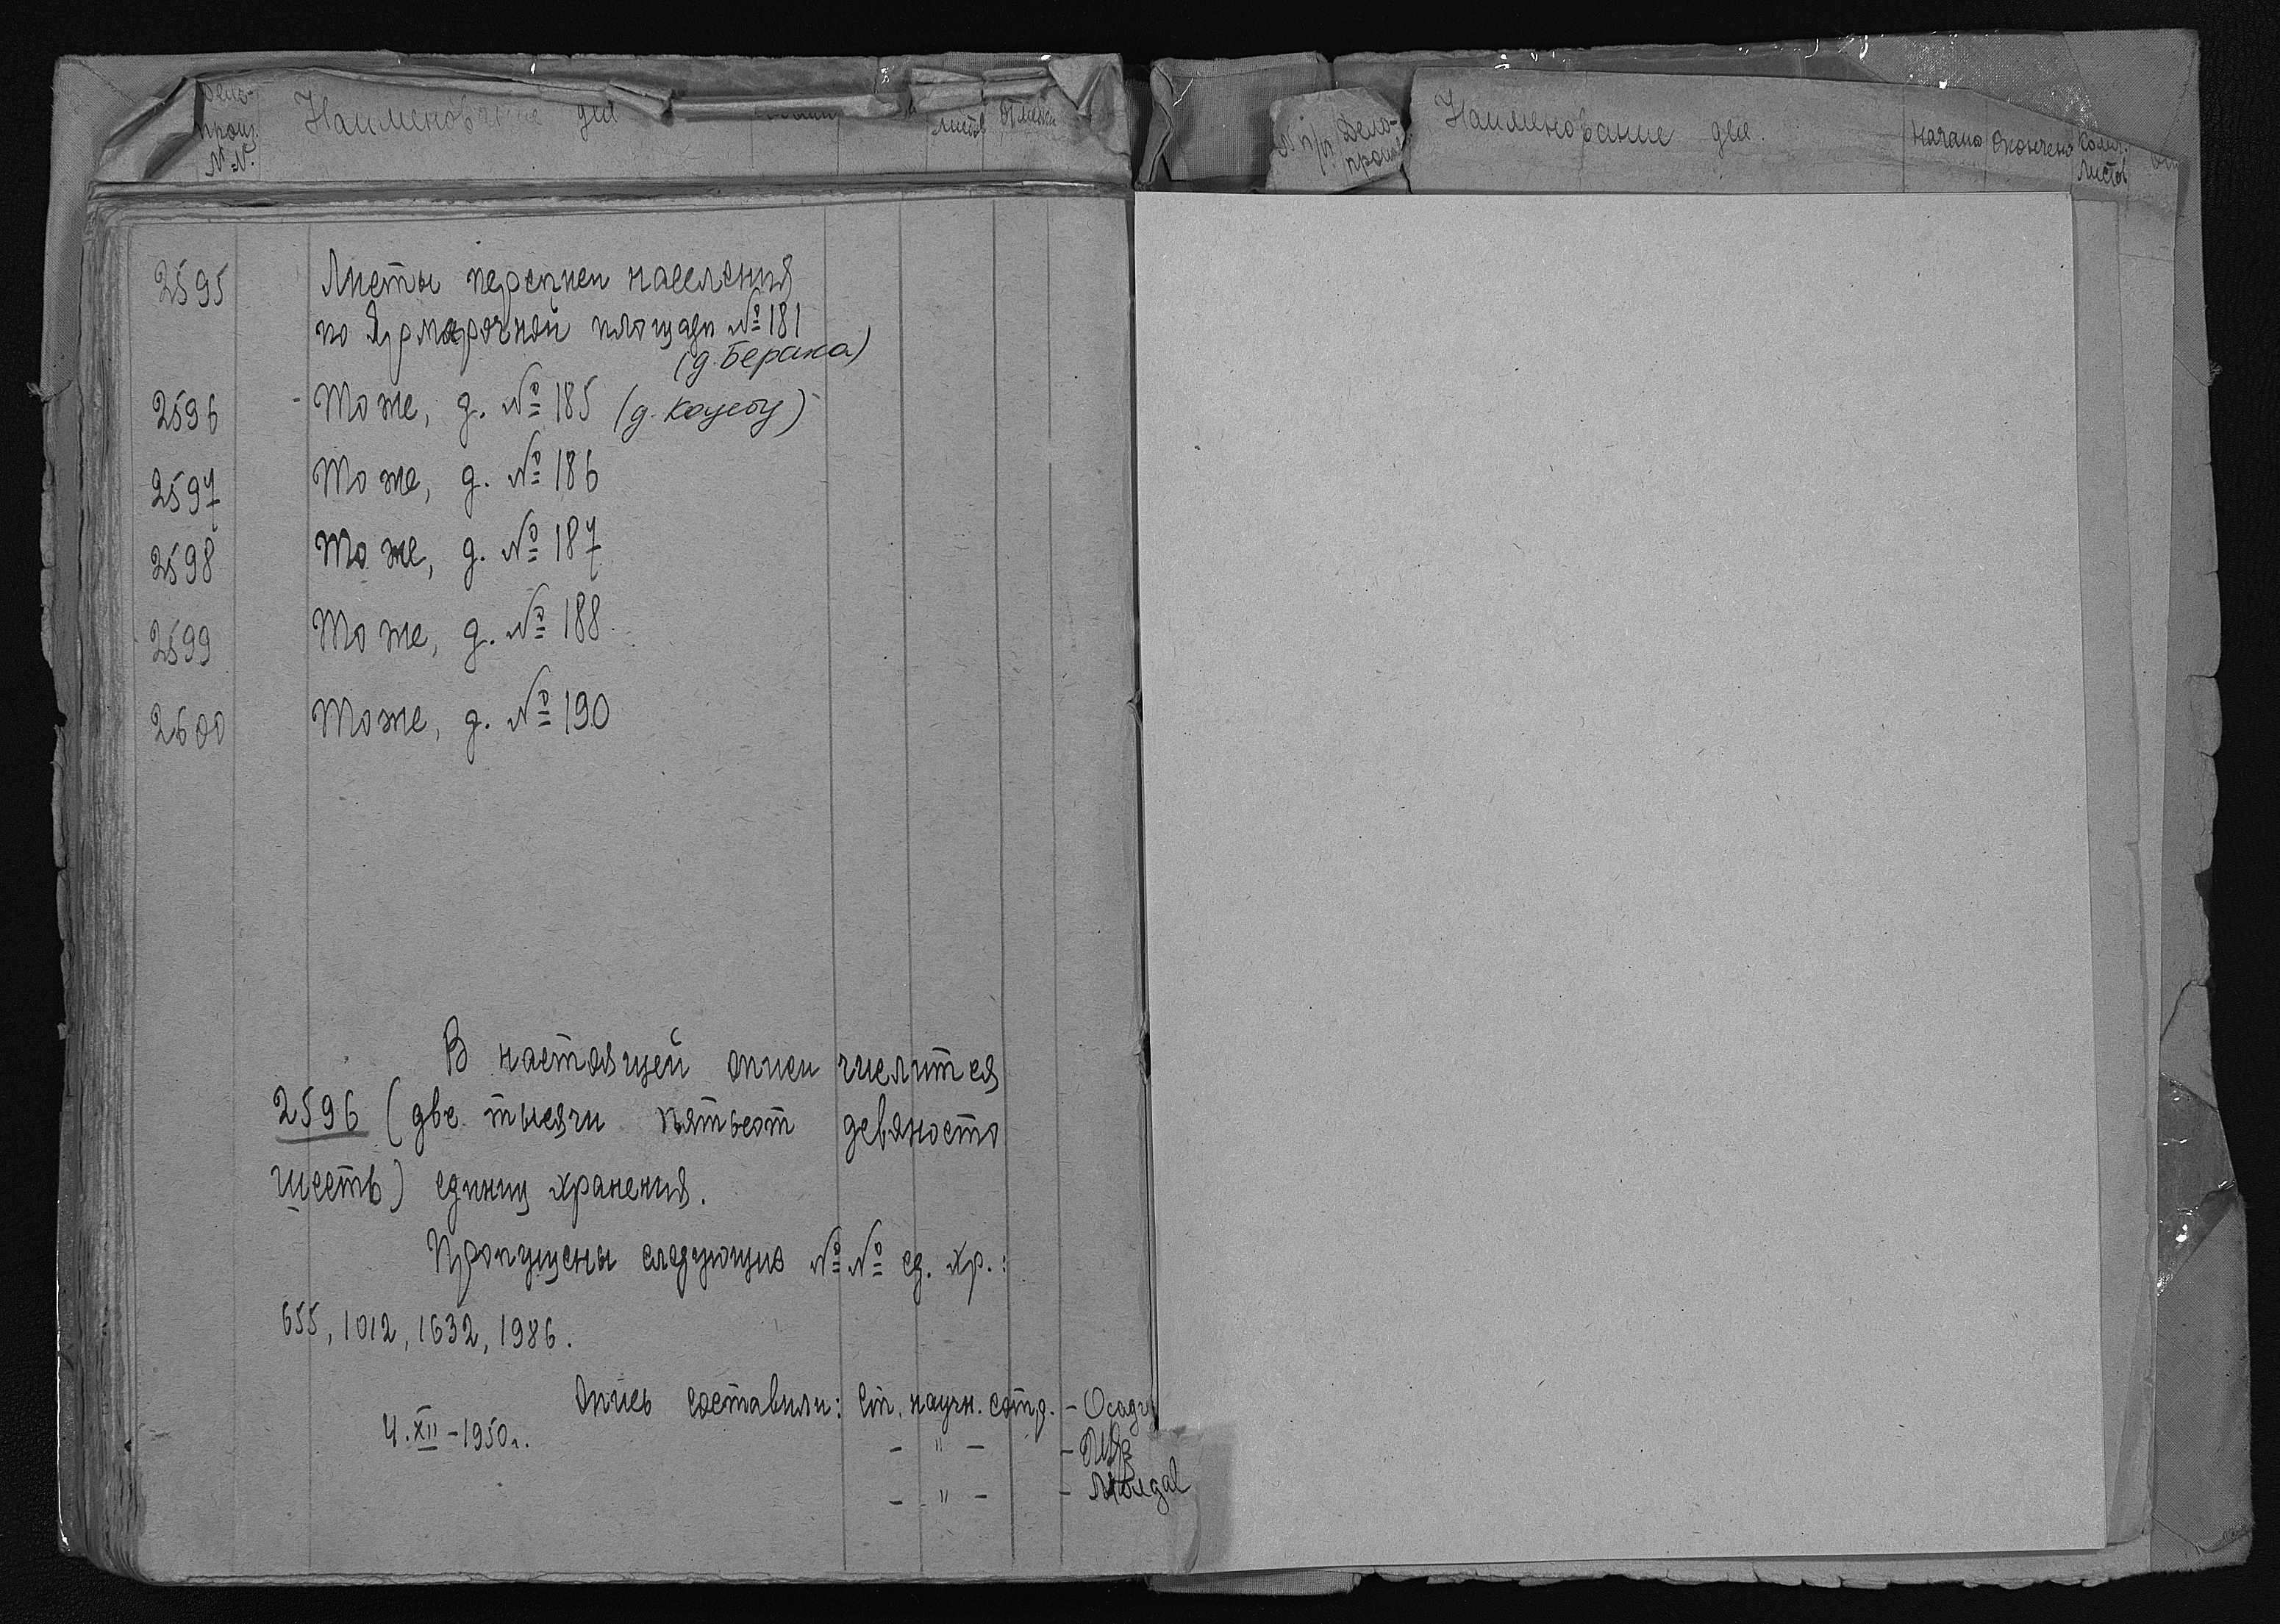 Дело-
произ.
№№.
Наименование дел
листов
2595 Листы переписи населения
по Ярмарочной площади №181
(д. Берака)
2596 - То же, д. №185 (д. Коцебу)
2597 То же, д. №186
2598 То же, д. №187
2599 То же, д. №188
2600 То же, д. №190
В настоящей описи числится
2596 (две тысячи пятьсот девяносто
шесть) единиц хранения.
Пропущены следующие №№ ед. хр.:
655, 1012, 1632, 1986.
Опись составили: Ст. научн. сотр. -
4.XII-1950г.
- " - -
- " - -
№ п/п
Дело-
произ
Наименование дел.
Начато
Окончено
Колич.
листов